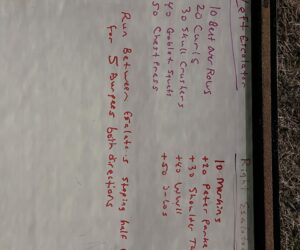 Left Escalator
10 Bent Over Rows
20 Curls
30 Skull Crushers
40 Goblet Squats
50 Chest Press
Right
10 Merkins
+20 Peter Parker
+30 Shoulder
+40 WWII
+50 
Run Between Escalators stoping half
for 5 Burpees both directions